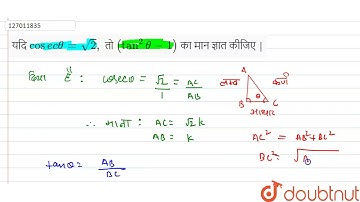 127011835
यदि cosecθ = √2, तो (tan² θ − 1) का मान ज्ञात कीजिए |
दिया है" : cosecθ = √2/1 = AC/AB
लम्ब A कर्ण
B θ C
आधार
∴ माना : AC = √2 k
AB = k
AC² = AB² + BC²
BC² = √
tanθ = AB/BC
doubtnut